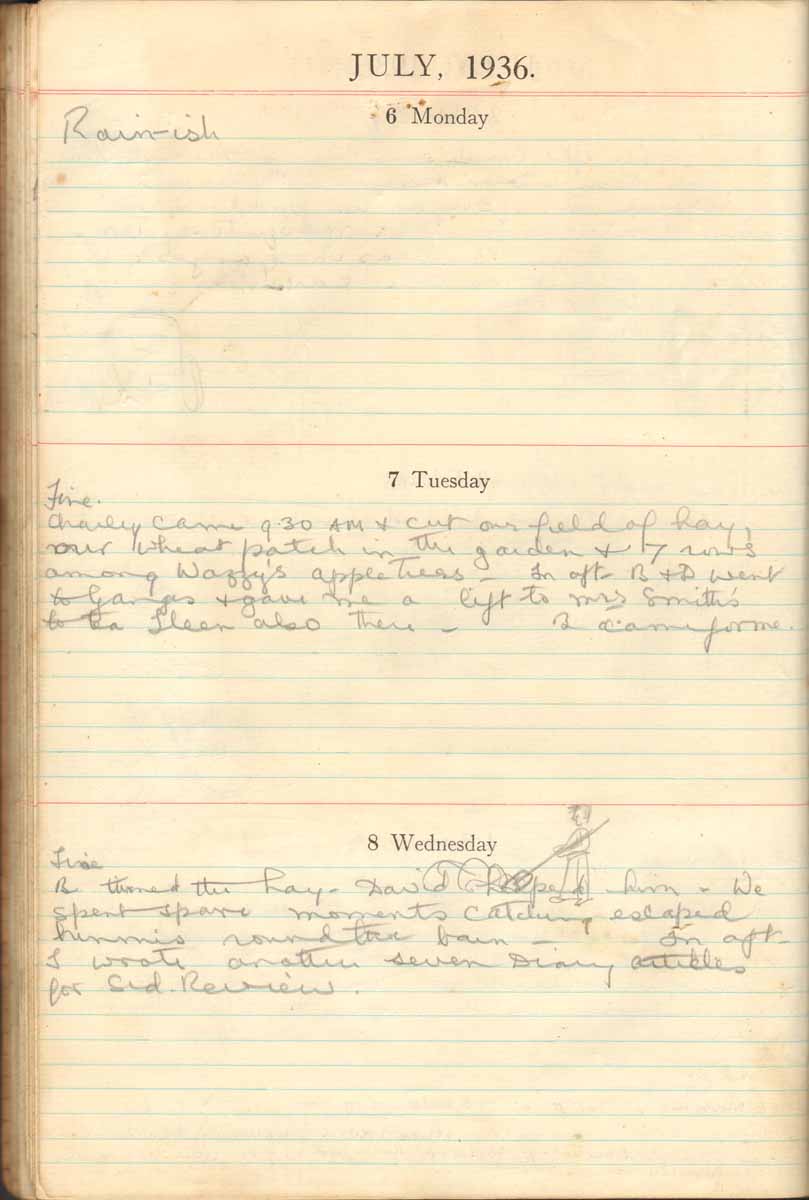 JULY, 1936.
6 Monday
Rain-ish
7 Tuesday
Fine.
Charley came 9.30 AM & cut our field of hay,
our wheat patch in the garden & 7 rows
among Wazzy's appletrees - In aft- B & D went
to Gangas & gave me a lift to Mrs Smith's
to tea Ileen also there - B came for me.
8 Wednesday
Fine
B turned the hay - David helped him - We
spent spare moments catching escaped
hinnis round the barn - In aft-
I wrote another seven Diary articles
for Sid. Review.